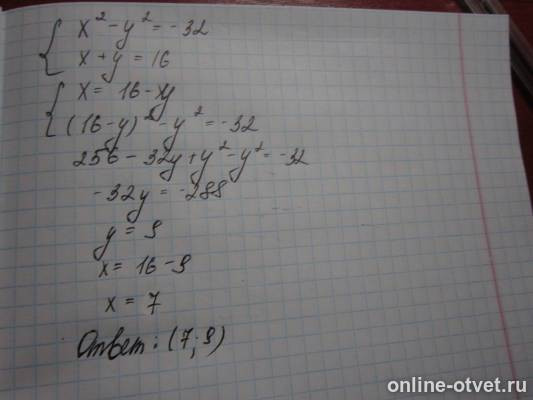 x² - y² = -32
x + y = 16
x = 16 - y
(16-y)² - y² = -32
256 - 32y + y² - y² = -32
-32y = -288
y = 9
x = 16 - 9
x = 7
Ответ: (7; 9)
online-otvet.ru